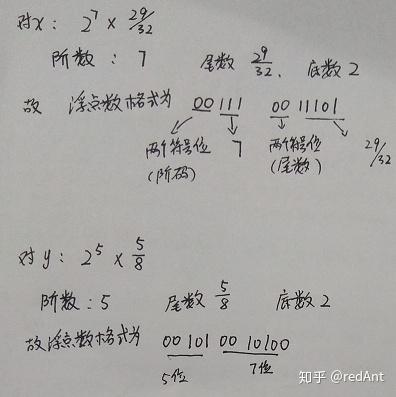 对x: 2^7 × 29/32
阶数: 7 尾数 29/32. 底数 2
故 浮点数格式为 00 111 00 11101
两个符号位(阶码) 7 两个符号位(尾数) 29/32
对y: 2^5 × 5/8
阶数: 5 尾数 5/8 底数 2
故浮点数格式为 00 101 00 10100
5位 7位
知乎 @redAnt